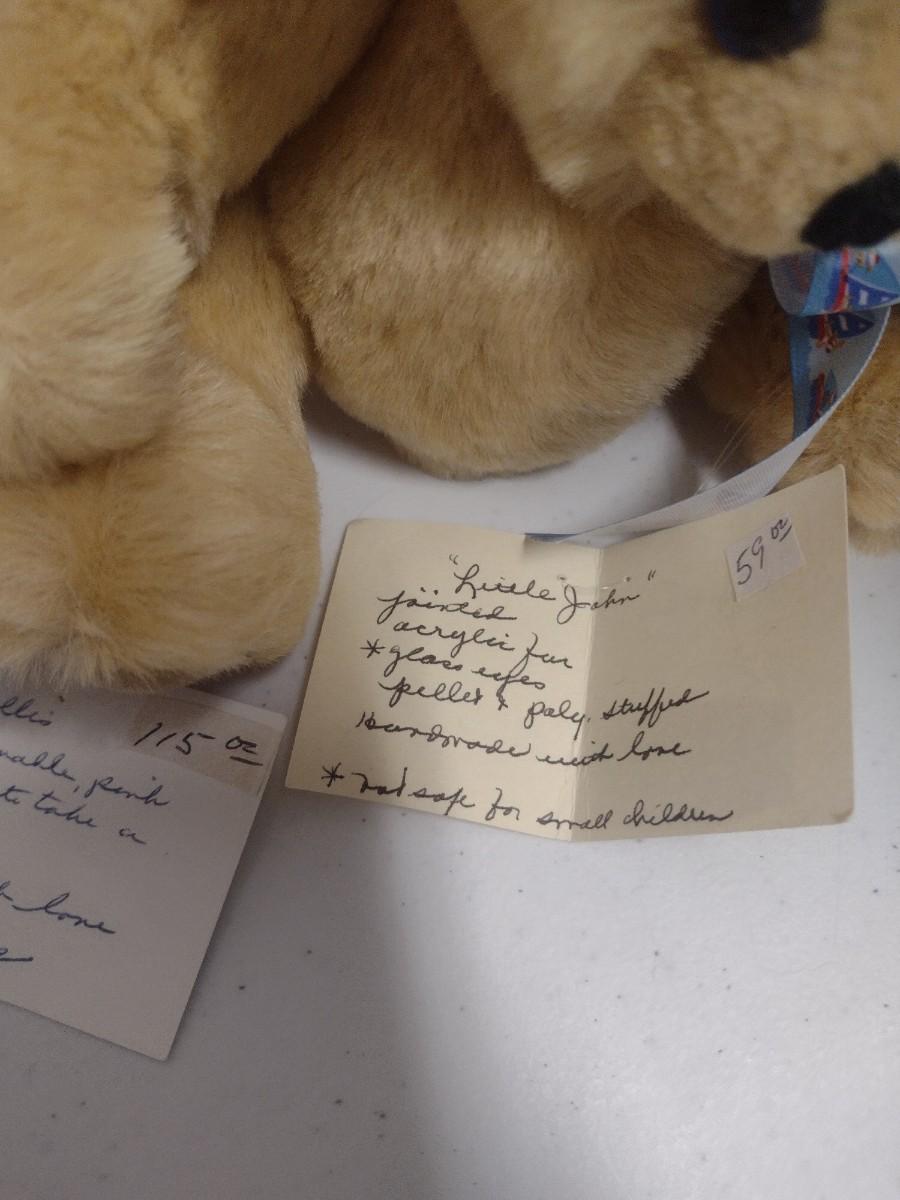 "Little John"
59 00
jointed
acrylic fur
* glass eyes
pellet & poly. stuffed
Handmade with love
* not safe for small children
115 00
pink
to take a
love